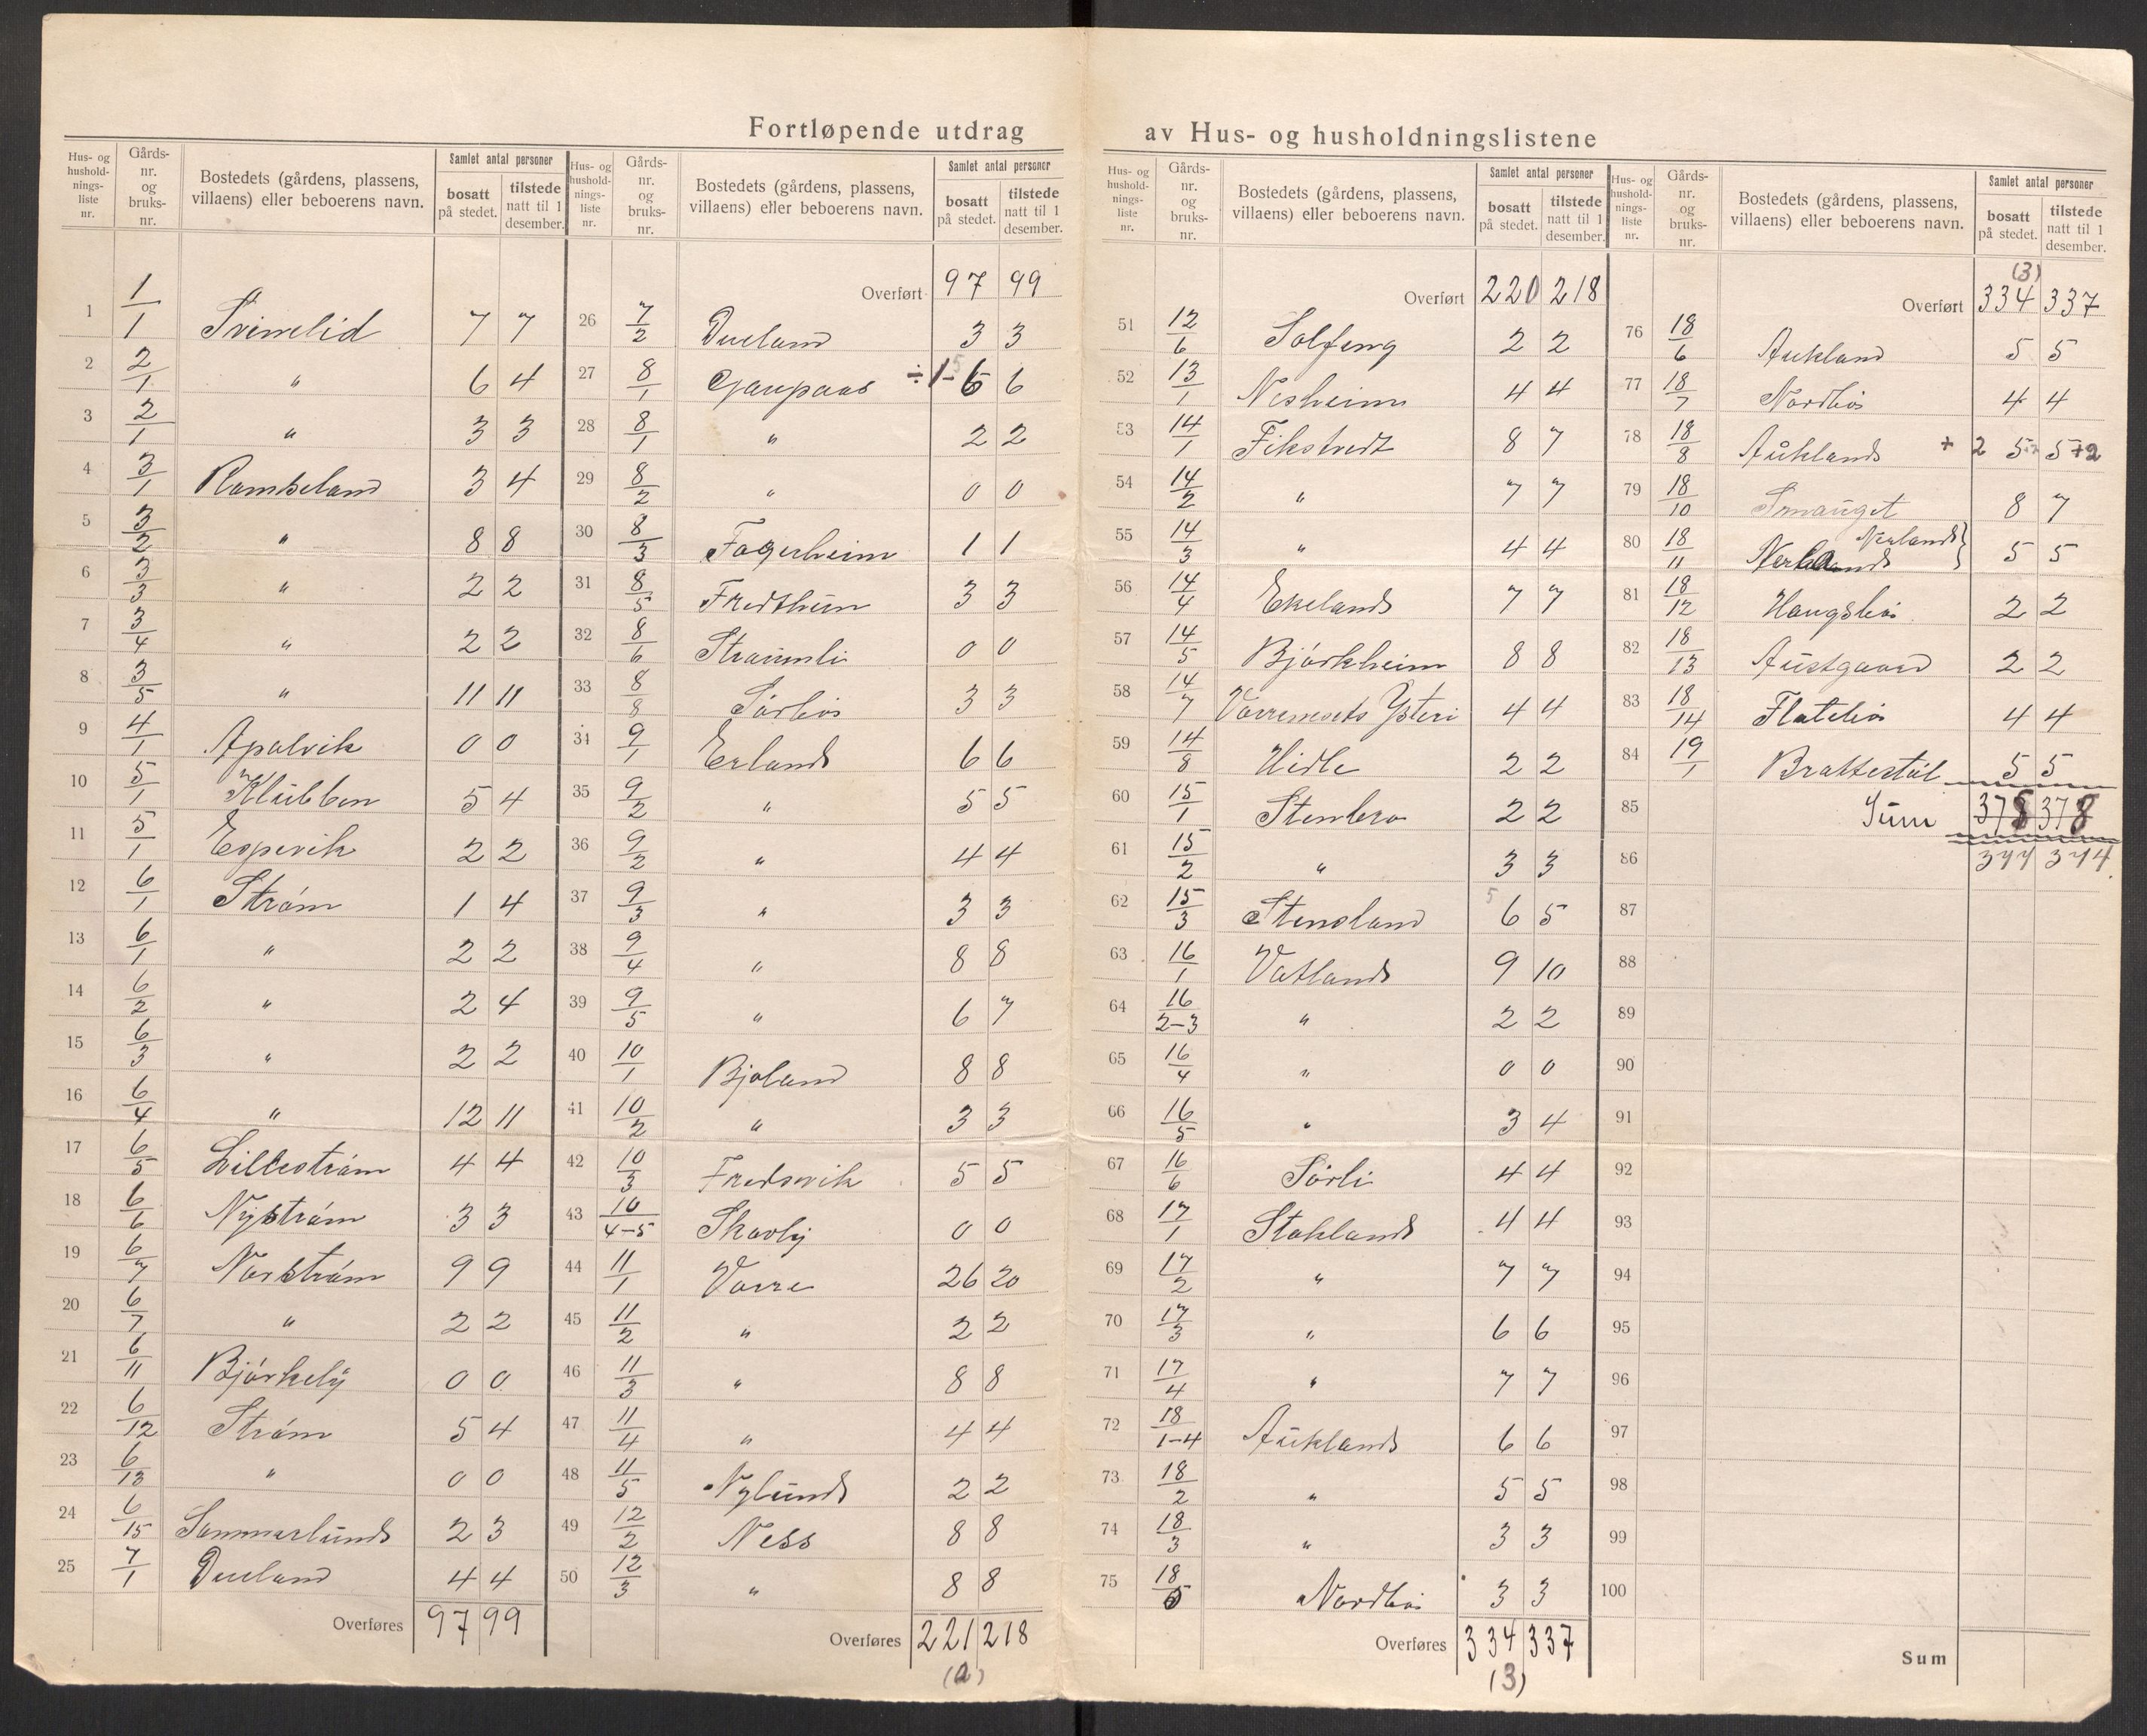 Fortløpende utdrag av Hus- og husholdningslistene
Hus- og husholdnings- liste nr. | Gårds- nr. og bruks- nr. | Bostedets (gårdens, plassens, villaens) eller beboerens navn. | Samlet antal personer | bosatt på stedet. | tilstede natt til 1 desember.
1 1/1 Svinelid 7 7
2 2/1 " 6 4
3 2/1 " 3 3
4 3/1 Ramseland 3 4
5 3/2 " 8 8
6 3/3 " 2 2
7 3/4 " 2 2
8 3/5 " 11 11
9 4/1 Apalvik 0 0
10 5/1 Klubben 5 4
11 5/1 Espevik 2 2
12 6/1 Strøm 1 4
13 6/1 " 2 2
14 6/2 " 2 4
15 6/3 " 2 2
16 6/4 " 12 11
17 6/5 Lillestrøm 4 4
18 6/6 Nystrøm 3 3
19 6/7 Norstrøm 9 9
20 6/7 " 2 2
21 6/11 Bjørkely 0 0
22 6/12 Strøm 5 4
23 6/13 " 0 0
24 6/15 Sommerlunds 2 3
25 7/1 Dueland 4 4
Overføres 97 99
Hus- og hushold- nings- liste nr. | Gårds- nr. og bruks- nr. | Bostedets (gårdens, plassens, villaens) eller beboerens navn. | Samlet antal personer | bosatt på stedet. | tilstede natt til 1 desember.
Overført 97 99
26 7/2 Dueland 3 3
27 8/1 Gaupaas ÷1- 5 6 6
28 8/1 " 2 2
29 8/2 " 0 0
30 8/3 Fagerheim 1 1
31 8/5 Fredheim 3 3
32 8/6 Straumli 0 0
33 8/8 Sørbø 3 3
34 9/1 Erland 6 6
35 9/2 " 5 5
36 9/2 " 4 4
37 9/3 " 3 3
38 9/4 " 8 8
39 9/5 " 6 7
40 10/1 Bjoland 8 8
41 10/2 " 3 3
42 10/3 Fredsvik 5 5
43 10/4-5 Skarly 0 0
44 11/1 Vorre 26 20
45 11/2 " 2 2
46 11/3 " 8 8
47 11/4 " 4 4
48 11/5 Nylund 2 2
49 12/2 Ness 8 8
50 12/3 " 8 8
Overføres 221 218
(2)
Hus- og hushold- nings- liste nr. | Gårds- nr. og bruks- nr. | Bostedets (gårdens, plassens, villaens) eller beboerens navn. | Samlet antal personer | bosatt på stedet. | tilstede natt til 1 desember.
Overført 220 218
51 12/6 Solfeng 2 2
52 13/1 Nesheim 4 4
53 14/1 Fikstvedt 8 7
54 14/2 " 7 7
55 14/3 " 4 4
56 14/4 Ekeland 7 7
57 14/5 Bjørkheim 8 8
58 14/7 Ysteri 4 4
59 14/8 Hidle 2 2
60 15/1 Stenbro 2 2
61 15/2 " 3 3
62 15/3 Stensland 5 6 5
63 16/1 Vatland 9 10
64 16/2-3 " 2 2
65 16/4 " 0 0
66 16/5 " 3 4
67 16/6 Sørli 4 4
68 17/1 Stokland 4 4
69 17/2 " 7 7
70 17/3 " 6 6
71 17/4 " 7 7
72 18/1-4 Aukland 6 6
73 18/2 " 5 5
74 18/3 " 3 3
75 18/5 Nordbø 3 3
Overføres 334 337
(3)
Hus- og husholdnings- liste nr. | Gårds- nr. og bruks- nr. | Bostedets (gårdens, plassens, villaens) eller beboerens navn. | Samlet antal personer | bosatt på stedet. | tilstede natt til 1 desember.
(3)
Overført 334 337
76 18/6 Aukland 5 5
77 18/7 Nordbø 4 4
78 18/8 Aukland + 2 5 5+2
79 18/10 8 7
80 18/11 Nerland Nerland } 5 5
81 18/12 Haugsbø 2 2
82 18/13 Austgaard 2 2
83 18/14 Flatebø 4 4
84 19/1 Brattestøl 5 5
85 Sum 378 378
86 377 374.
87
88
89
90
91
92
93
94
95
96
97
98
99
100
Sum